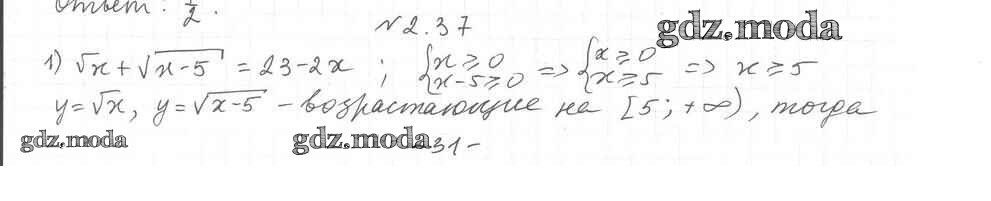 Ответ: 1/2.
№2.37
gdz.moda
1) √x + √(x-5) = 23-2x ; {x ⩾ 0 {x-5 ⩾ 0 => {x ⩾ 0 {x ⩾ 5 => x ⩾ 5
y=√x, y=√(x-5) - возрастающие на [5; +∞), тогда
gdz.moda gdz.moda -31-